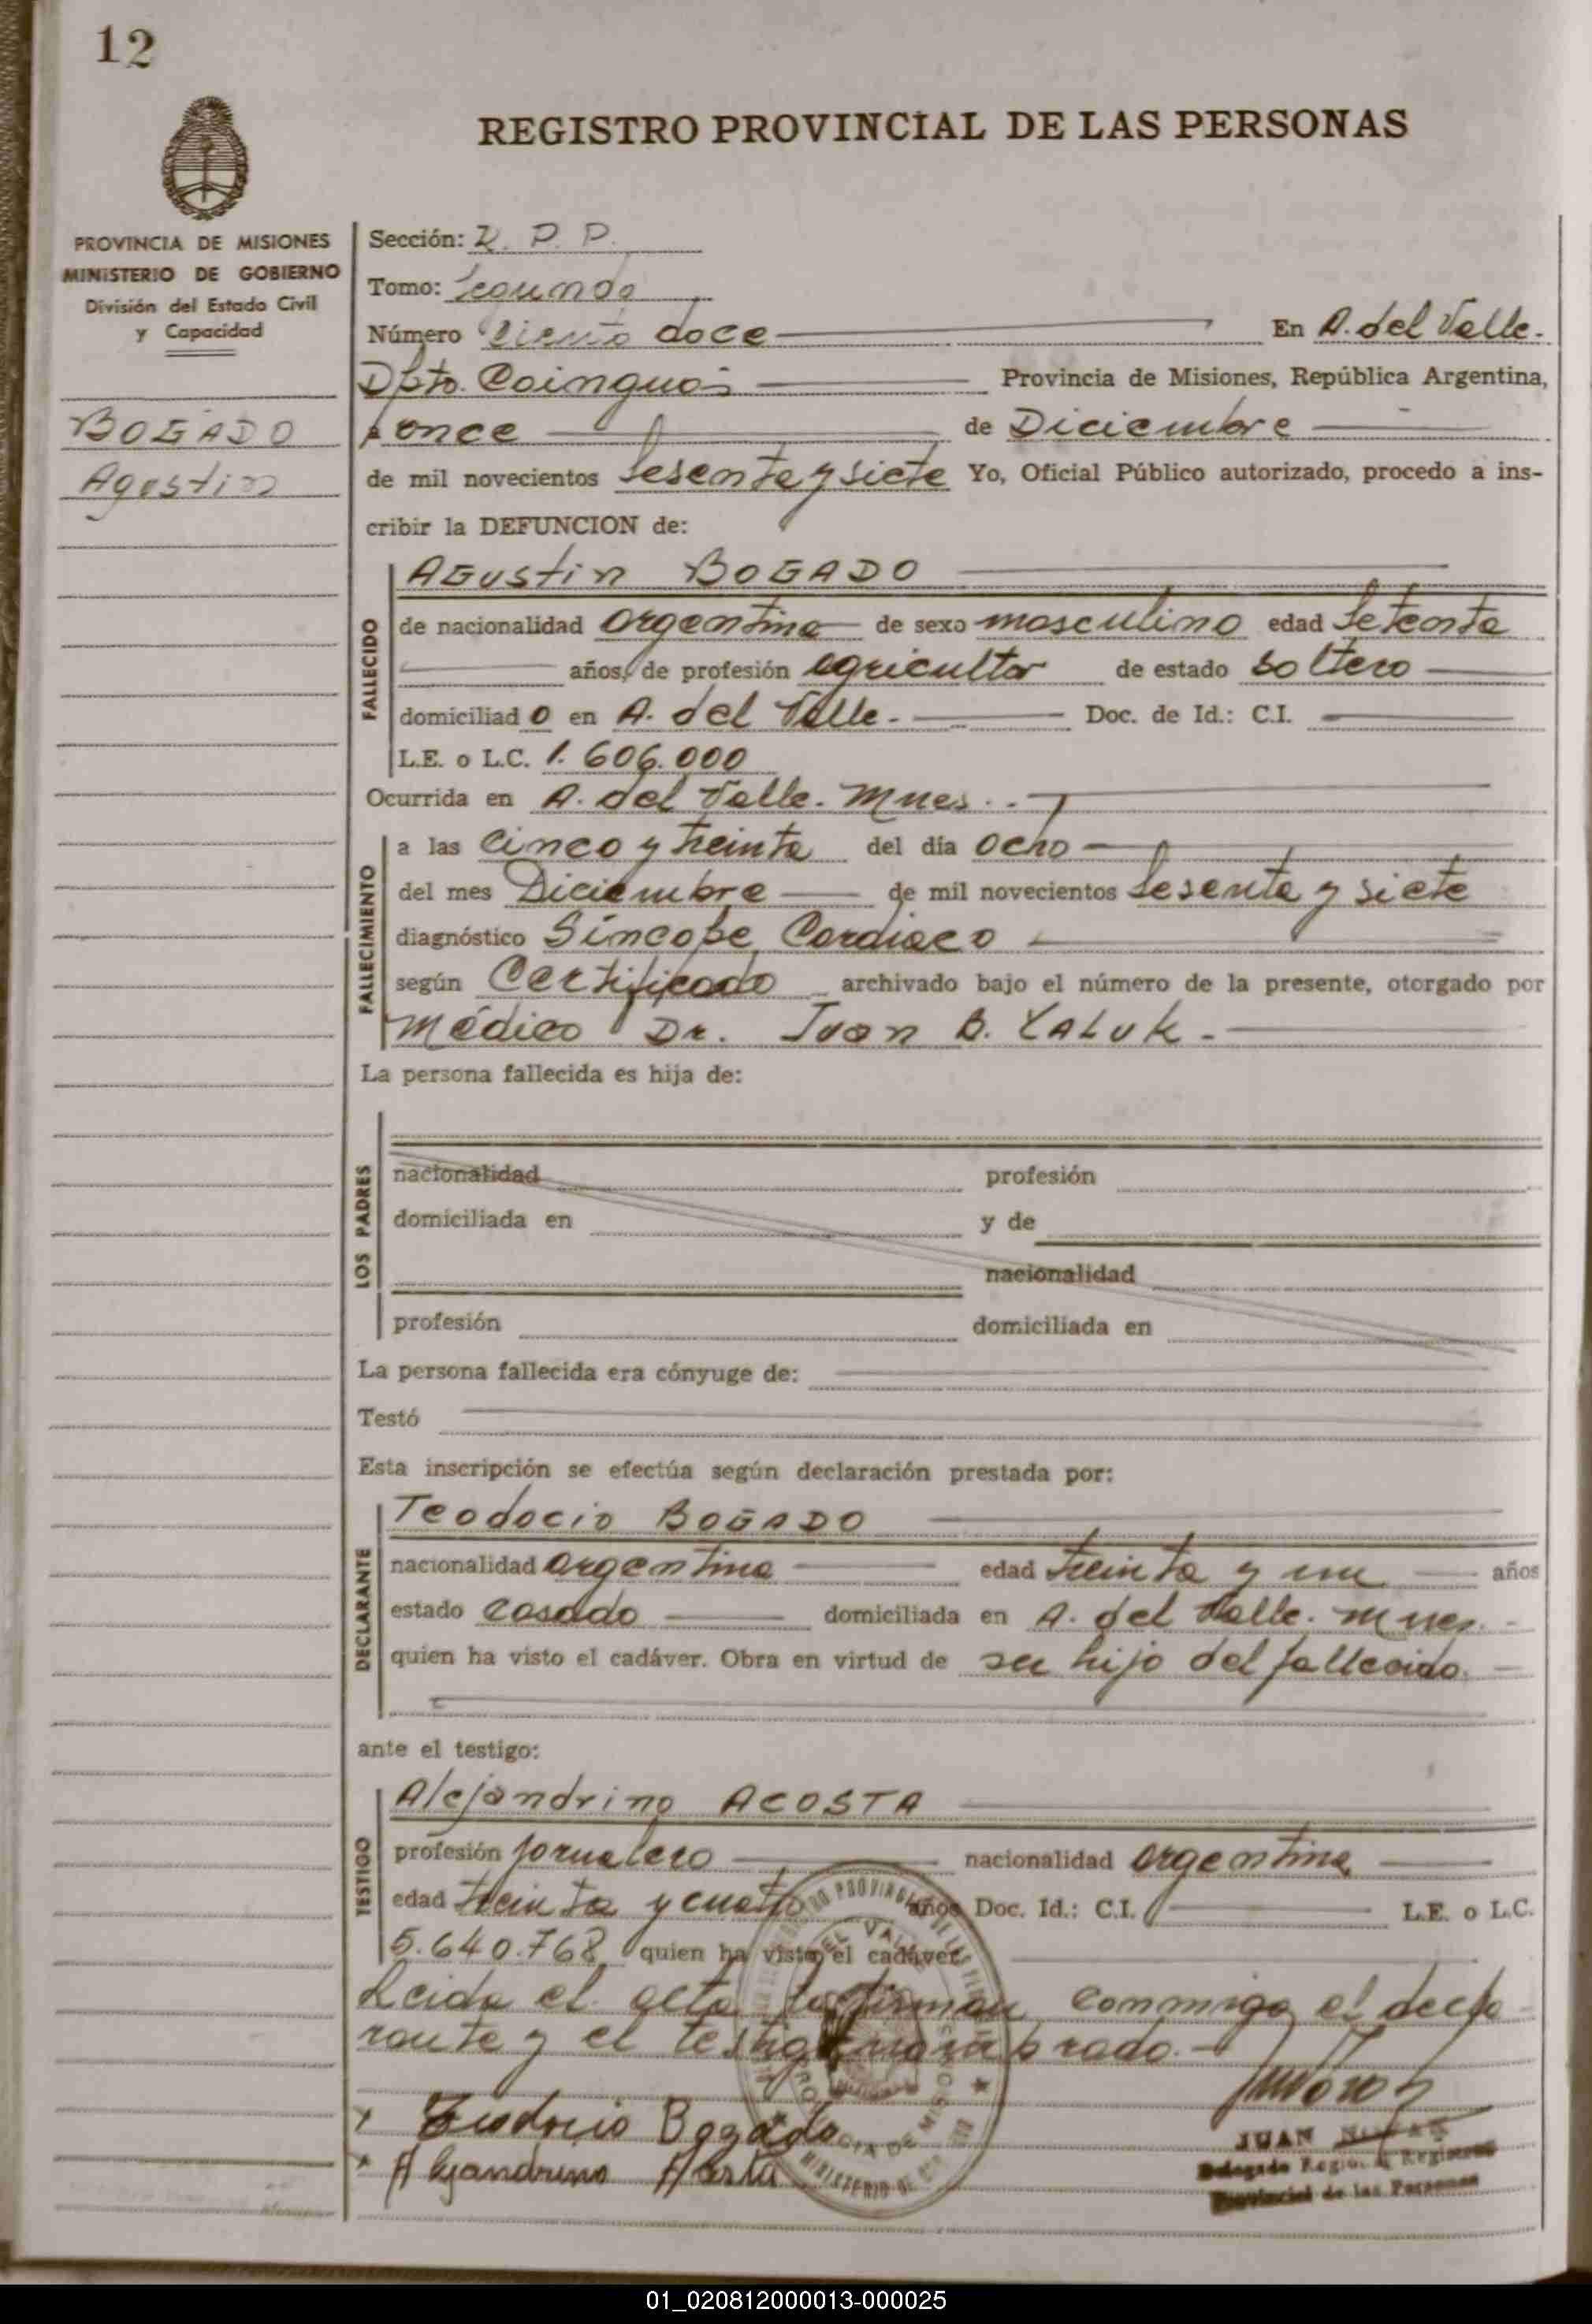 12
REGISTRO PROVINCIAL DE LAS PERSONAS
PROVINCIA DE MISIONES
MINISTERIO DE GOBIERNO
División del Estado Civil
y Capacidad
BOGADO
Agustin
Sección: R. P. P.
Tomo: Segundo
Número Ciento doce En A. del Valle.
Dpto. Cainguás Provincia de Misiones, República Argentina,
a once de Diciembre
de mil novecientos Sesenta y siete Yo, Oficial Público autorizado, procedo a ins-
cribir la DEFUNCION de:
FALLECIDO
Agustin BOGADO
de nacionalidad argentina de sexo masculino edad Setenta
años, de profesión agricultor de estado soltero
domiciliad o en A. del Valle. Doc. de Id.: C.I.
L.E. o L.C. 1.606.000
Ocurrida en A. del Valle. Mnes.
FALLECIMIENTO
a las Cinco y treinta del día ocho
del mes Diciembre de mil novecientos Sesenta y siete
diagnóstico Síncope Cardiaco
según Certificado archivado bajo el número de la presente, otorgado por
Médico Dr. Juan B. YALUK.
La persona fallecida es hija de:
LOS PADRES
nacionalidad profesión
domiciliada en y de
nacionalidad
profesión domiciliada en
La persona fallecida era cónyuge de:
Testó
Esta inscripción se efectúa según declaración prestada por:
DECLARANTE
Teodocio BOGADO
nacionalidad argentina edad treinta y un años
estado casado domiciliada en A. del Valle. Mnes.
quien ha visto el cadáver. Obra en virtud de ser hijo del fallecido.
ante el testigo:
TESTIGO
Alejandrino ACOSTA
profesión jornalero nacionalidad argentina
edad treinta y cuatro años Doc. Id.: C.I. L.E. o L.C.
5.640.768 quien ha visto el cadáver
Leida el acta la firman conmigo el decla
rante y el testigo nombrado.
Teodocio Bogado
Alejandrino Acosta
JUAN
Delegado Regional Registro
Provincial de las Personas
01_020812000013-000025